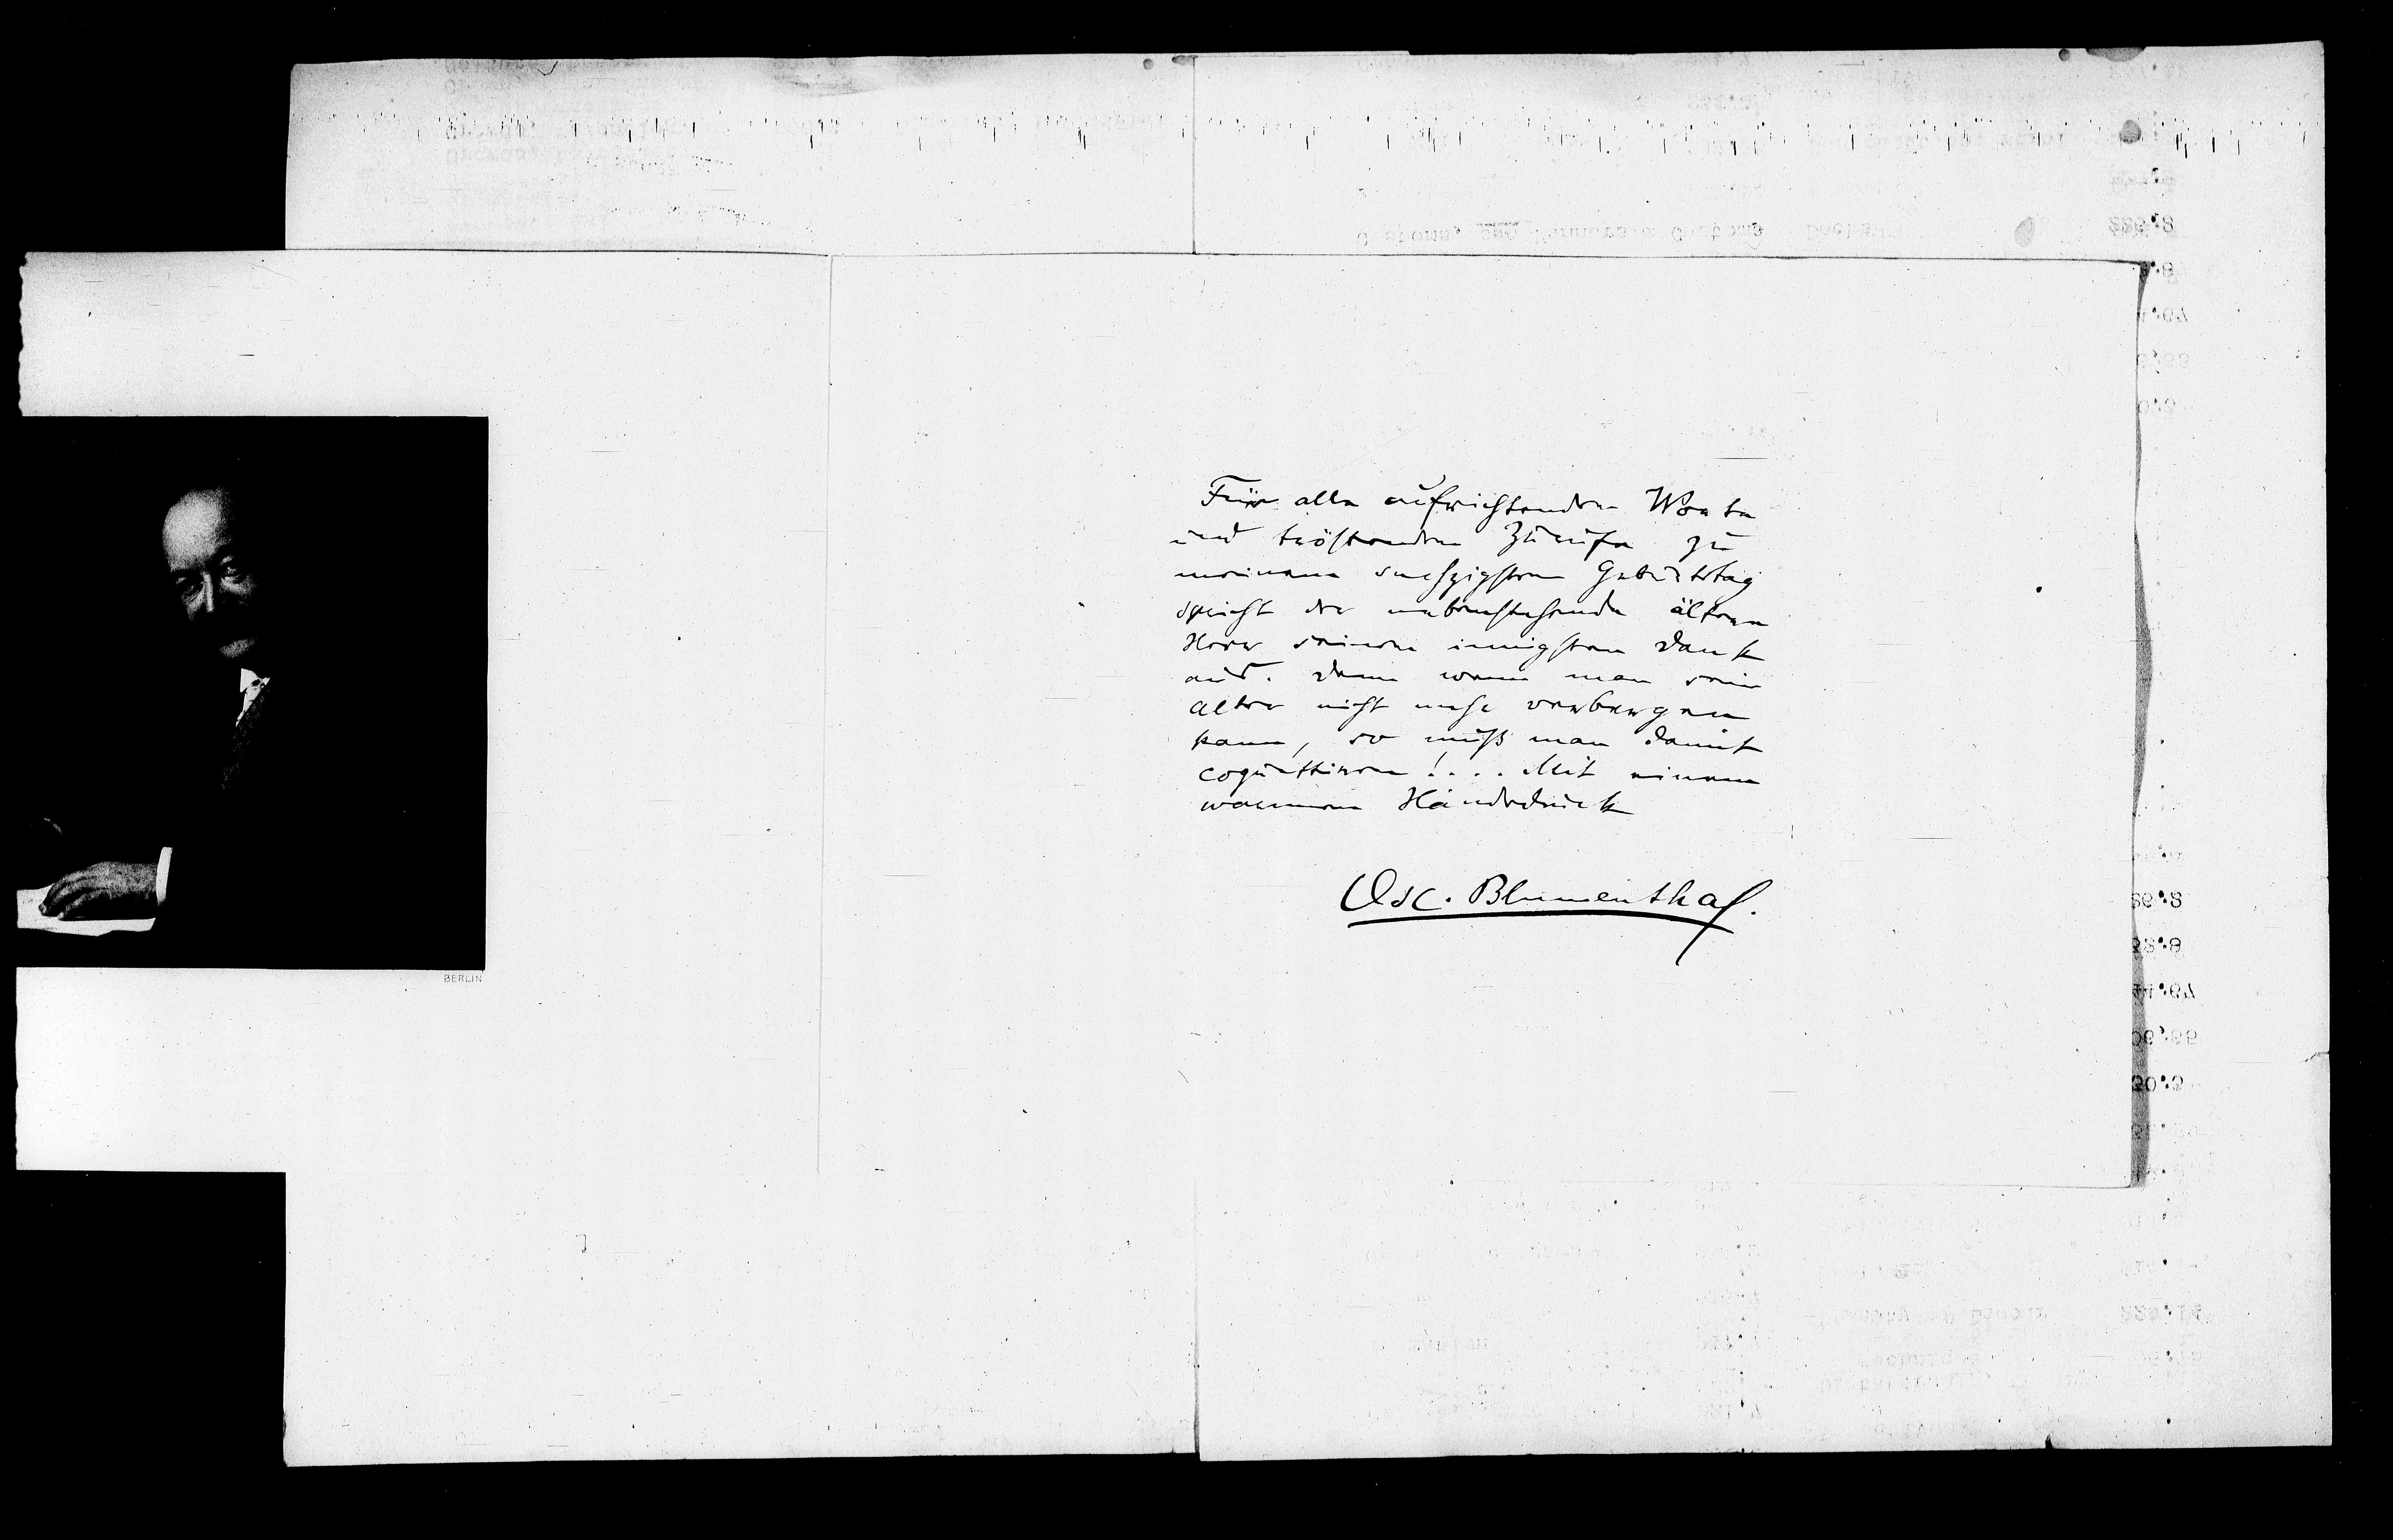 Für alle aufrichtenden Worte
und tröstenden Zurufe zu
meinem sechzigsten Geburtstag
spricht der nebenstehende ältere
Herr seinen innigsten Dank
aus. Denn wenn man sein
Alter nicht mehr verbergen
kann, so muß man damit
coquettiren!... Mit einem
warmen Händedruck
Osc. Blumenthal.
BERLIN